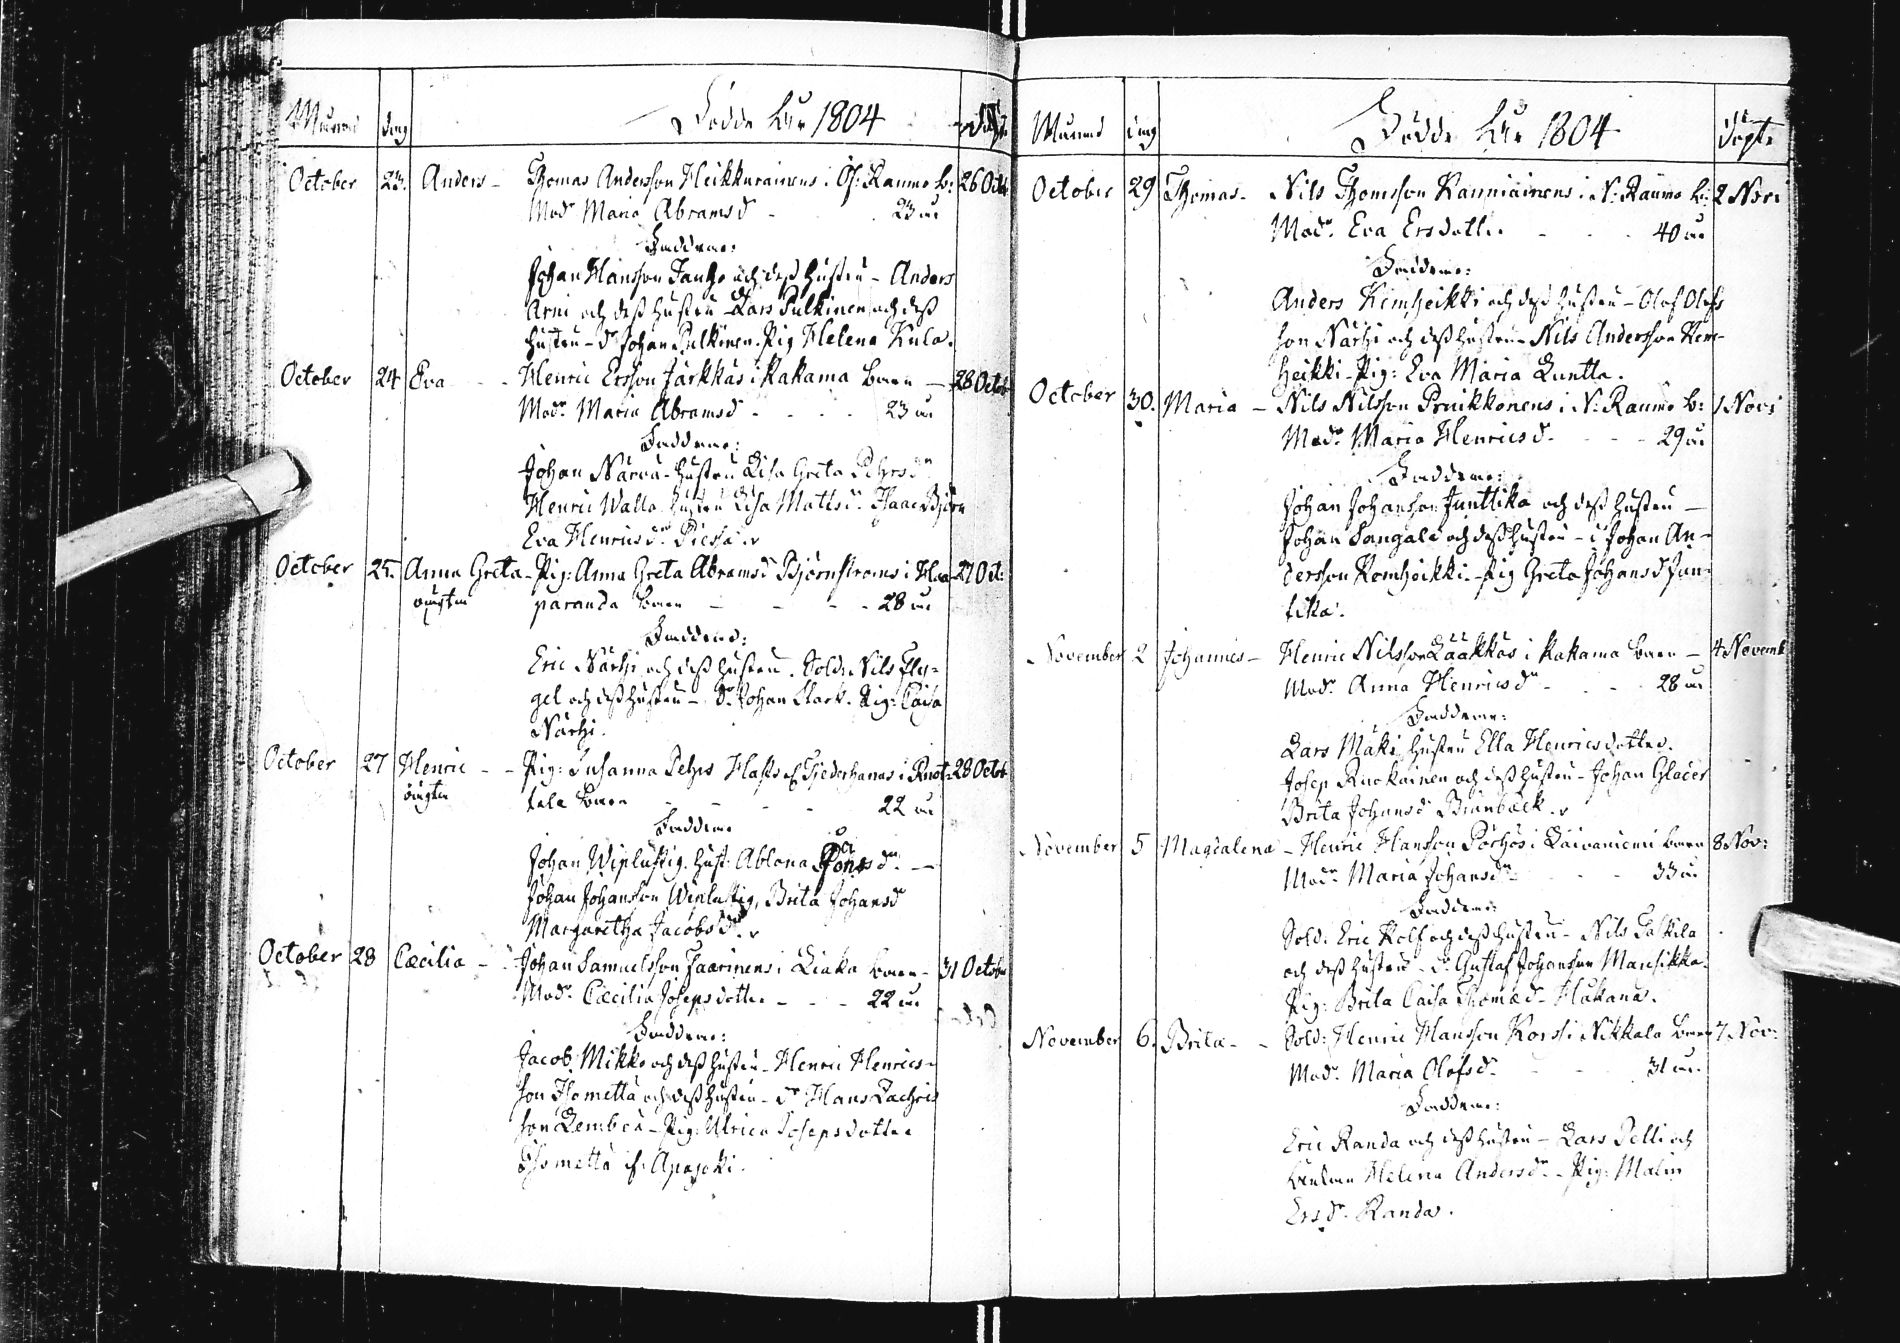 Månad dag Födde År 1804 döpte
October 23. Anders - Thomas Andersson Heikkurainens i Öf: Raumo b: 26 Octr
Modr Maria Abramsdr - - - 23 år
Faddrar:
Johan Hansson Tauho och dess hustru - Anders
Arni och dess hustru - Lars Pulkinen och dess
hustru - dr Johan Pulkinen. Pig Helena Kula.
October 24 Eva - - Henric Ersson Järkkäs i Kakama barn - 28 Octob
Modr Maria Abramsd - - - - 23 år
Faddrar:
Johan Närvä - hustru Lisa Greta Pehrsdr
Henric Walla hustru Lisa Mattsdr. Isaac Björn
Eva Henricsdr Piessa.
October 25. Anna Greta - Pig: Anna Greta Abramsd Björnströms i Haa- 27 Oct:
oägta paranda barn - - - - 28 år
Faddrar:
Eric Närhi och dess hustru. Sold: Nils Fly=
gel och dess hustru - Dr Johan Stark. Pig: Caisa
Närhi.
October 27 Henric - - Pig: Susanna Pehrs i Knot- 28 Octob
oägta tala barn - - - - 22 år
Faddrar
Johan Wiplustig. Hust: Ablona dr -
Johan Johansson Wiplustig, Brita Johansd
Margaretha Jacobsdr.
October 28 Cæcilia - - Johan Samuelsson Jaarinens i Liaka barn - 31 Octobr
Modr Cæcilia Josepsdotter - - - 22 år
Faddrar:
Jacob Mikko och dess hustru - Henric Henrics-
son Thometta och dess hustru - dr Hans Zachris
son Lembea - Pig: Ulrica Josepsdotter
Thometta if: Apajoki.
Månad dag Födde År 1804 döpte
October 29 Thomas - Nils Thomsson Kanniainens i N: Raumo b: 2 Novr
Modr Eva Ersdotter - - - 40 år
Faddrar:
Anders Kemheikki och dess hustru - Olof Olofs
son Närhi och dess hustru - Nils Andersson Kem-
heikki - Pig: Eva Maria Luntta.
October 30. Maria - Nils Nilsson Pruikkonens i N: Raumo b: 1 Nov:
Modr Maria Henricsd - - - 29 år
Faddrar:
Johan Johansson Junttika och dess hustru -
Johan Sangala och dess hustru - dr Johan An-
dersson Kemheikki - Pig Greta Johansd Jun=
tika.
November 2 Johannes - Henric Nilsson Lääkkäs i Kakama barn - 4 Novemb
Modr Anna Henricsdr - - - 28 år
Faddrar:
Lars Mäki, hustru Ella Henricsdotter.
Josep Ruokainen och dess hustru - Johan Glacer
Brita Johansdr Brännbäck.
November 5 Magdalena - Henric Hansson Pörhös i Laivaniemi barn 8 Nov:
Modr Maria Johansdr - - - 33 år
Faddrar:
Sold: Eric Rolf och dess hustru - Nils Taskila
och dess hustru - dr: Gustaf Johansson Mansikka.
Pig: Brita Caisa Thomæd - Hakana.
November 6. Brita - - Sold: Henric Hansson Kors i Nikkala barn 7 Nov:
Modr Maria Olofsdr - - - 31 år
Faddrar:
Eric Randa och dess hustru - Lars Pelli och
Helena Andersdr - Pig: Malin
Ersdr Randa.